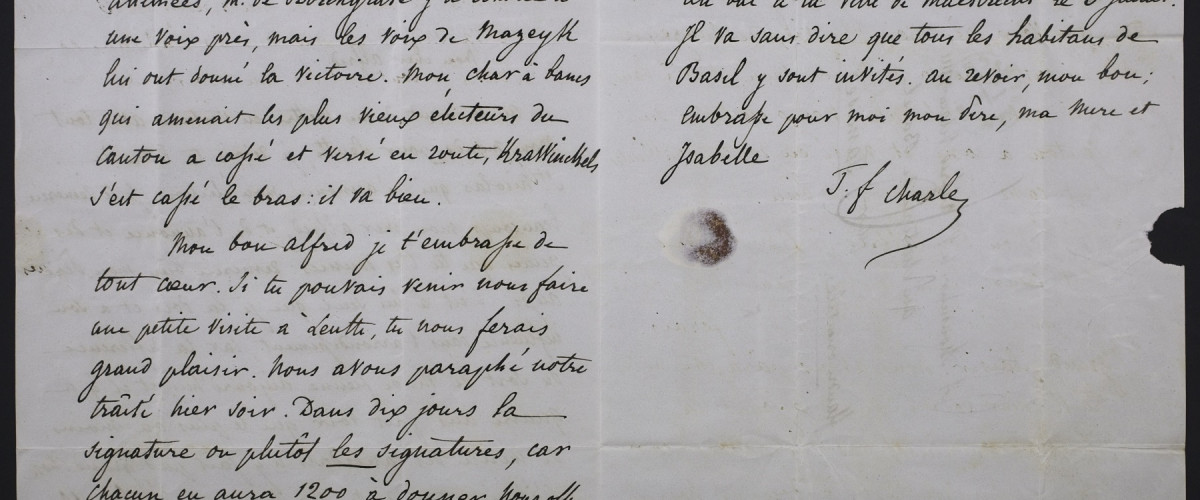 une voix près, mais les voix de Mazeyk
lui ont donné la victoire. Mon char à bancs
qui amenait les plus vieux électeurs du
Canton a cassé et versé en route, Krawinckels
s'est cassé le bras : il va bien.
Mon bon alfred je t'embrasse de
tout cœur. Si tu pouvais venir nous faire
une petite visite à Leuth, tu nous ferais
grand plaisir. Nous avons paraphé notre
traité hier soir. Dans dix jours la
signature ou plutôt les signatures, car
chacun en aura 1200 à donner.
Il va sans dire que tous les habitans de
Basel y sont invités. au revoir, mon bon ;
Embrasse pour moi mon Père, ma Mere et
Isabelle
T. f Charle